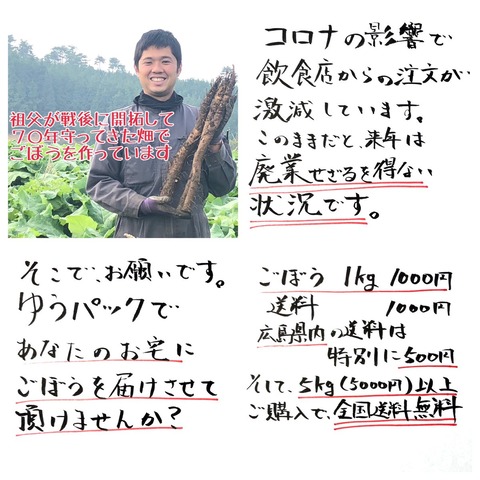 祖父が戦後に開拓して
70年守ってきた畑で
ごぼうを作っています
コロナの影響で
飲食店からの注文が
激減しています。
このままだと、来年は
廃業せざるを得ない
状況です。
そこで、お願いです。
ゆうパックで
あなたのお宅に
ごぼうを届けさせて
頂けませんか?
ごぼう 1kg 1000円
送料 1000円
広島県内の送料は
特別に500円
そして、5kg(5000円)以上
ご購入で、全国送料無料